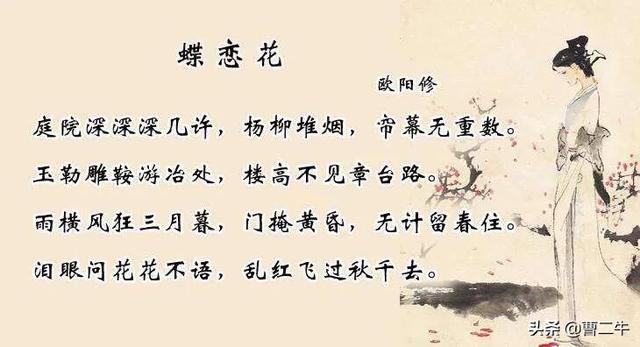 蝶恋花
欧阳修
庭院深深深几许，杨柳堆烟，帘幕无重数。
玉勒雕鞍游冶处，楼高不见章台路。
雨横风狂三月暮，门掩黄昏，无计留春住。
泪眼问花花不语，乱红飞过秋千去。
头条@曹二牛